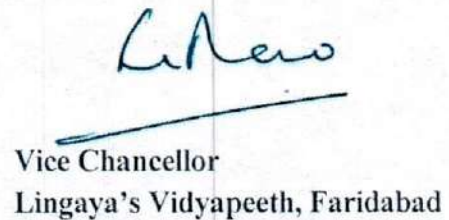 Vice Chancellor
Lingaya's Vidyapeeth, Faridabad